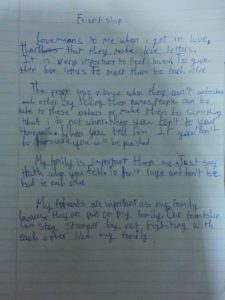 Friendship
Love means to me when i get in love,
that they make love letters.
It is very important to feel loved to give
them love letters to meet them to each other.
The people like village who they can't understand
each other by telling them names. People can be
late to these others or make them to something
that i to not want. When your don't to your
Homework when you tell him If you don't
to Homework you will be punished.
My family is important them me. Just say
truth who you tell to don't large and don't be
bad to each other.
My friends are important as my family
because they are part on my family. Our friendship
can stay stronger by not fighting with
each other like my family.